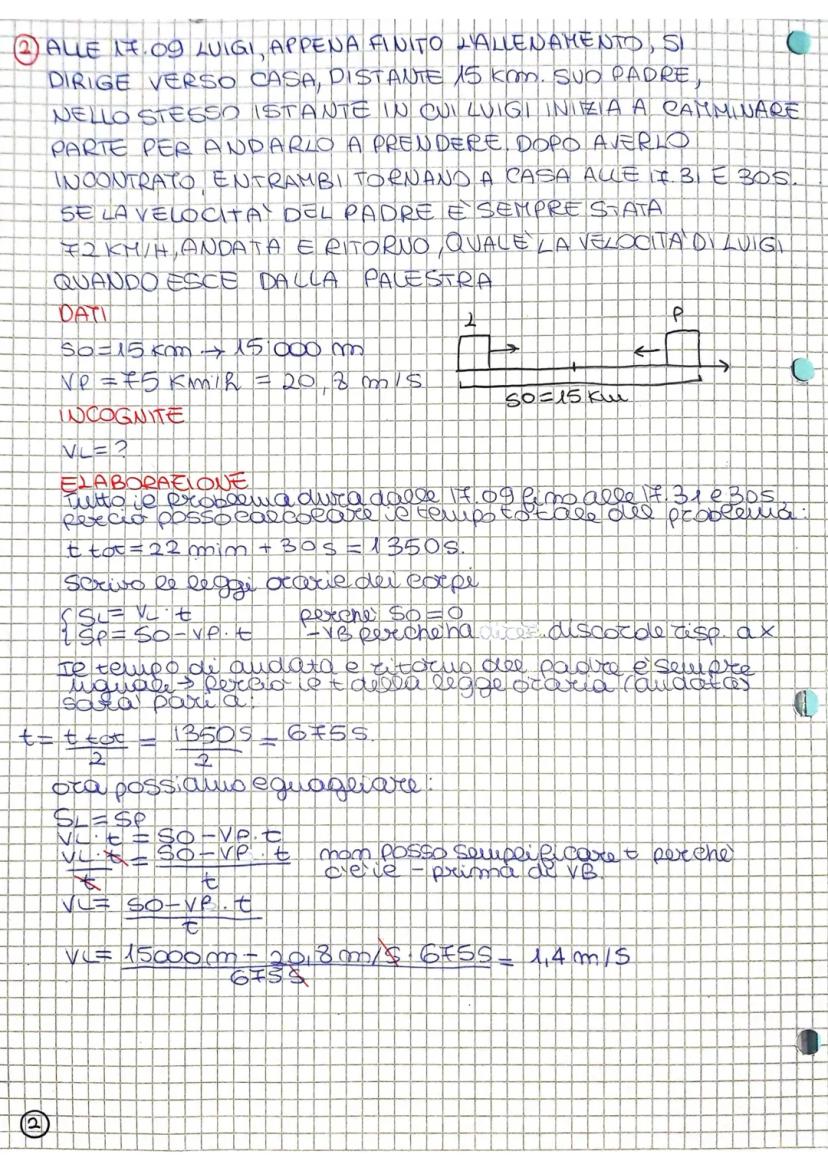 ② ALLE 17.09 LUIGI, APPENA FINITO L'ALLENAMENTO, SI
DIRIGE VERSO CASA, DISTANTE 15 Km. SUO PADRE,
NELLO STESSO ISTANTE IN CUI LUIGI INIZIA A CAMMINARE
PARTE PER ANDARLO A PRENDERE. DOPO AVERLO
INCONTRATO, ENTRAMBI TORNANO A CASA ALLE 17.31 E 30S.
SE LA VELOCITA' DEL PADRE E' SEMPRE STATA
72 KM/H, ANDATA E RITORNO, QUAL'E' LA VELOCITA' DI LUIGI
QUANDO ESCE DALLA PALESTRA
DATI
L P
SO=15 Km → 15'000 m
VP = 75 Km/h = 20,8 m/s
SO=15 Km
INCOGNITE
VL=?
ELABORAZIONE
Tutto il problema dura dalle 17.09 fino alle 17.31 e 30s,
perciò posso calcolare il tempo totale del problema:
t tot=22 min + 30s = 1350s.
Scrivo le leggi orarie dei corpi
{SL= VL·t perchè SO=0
SP= SO-VP·t -VB perchè ha discorde risp. a x
Il tempo di andata e ritorno del padre è sempre
uguale → perciò il t della legge oraria (andata)
sarà pari a:
t= t tot/2 = 1350s/2 = 675s.
ora possiamo eguagliare:
SL=SP
VL·t = SO-VP.t
VL·t/t = SO-VP.t/t non posso semplificare t perchè
c'è il - prima di VB.
VL= SO-VP.t/t
VL= 15000m - 20,8 m/s · 675s/675s = 1,4 m/s
②